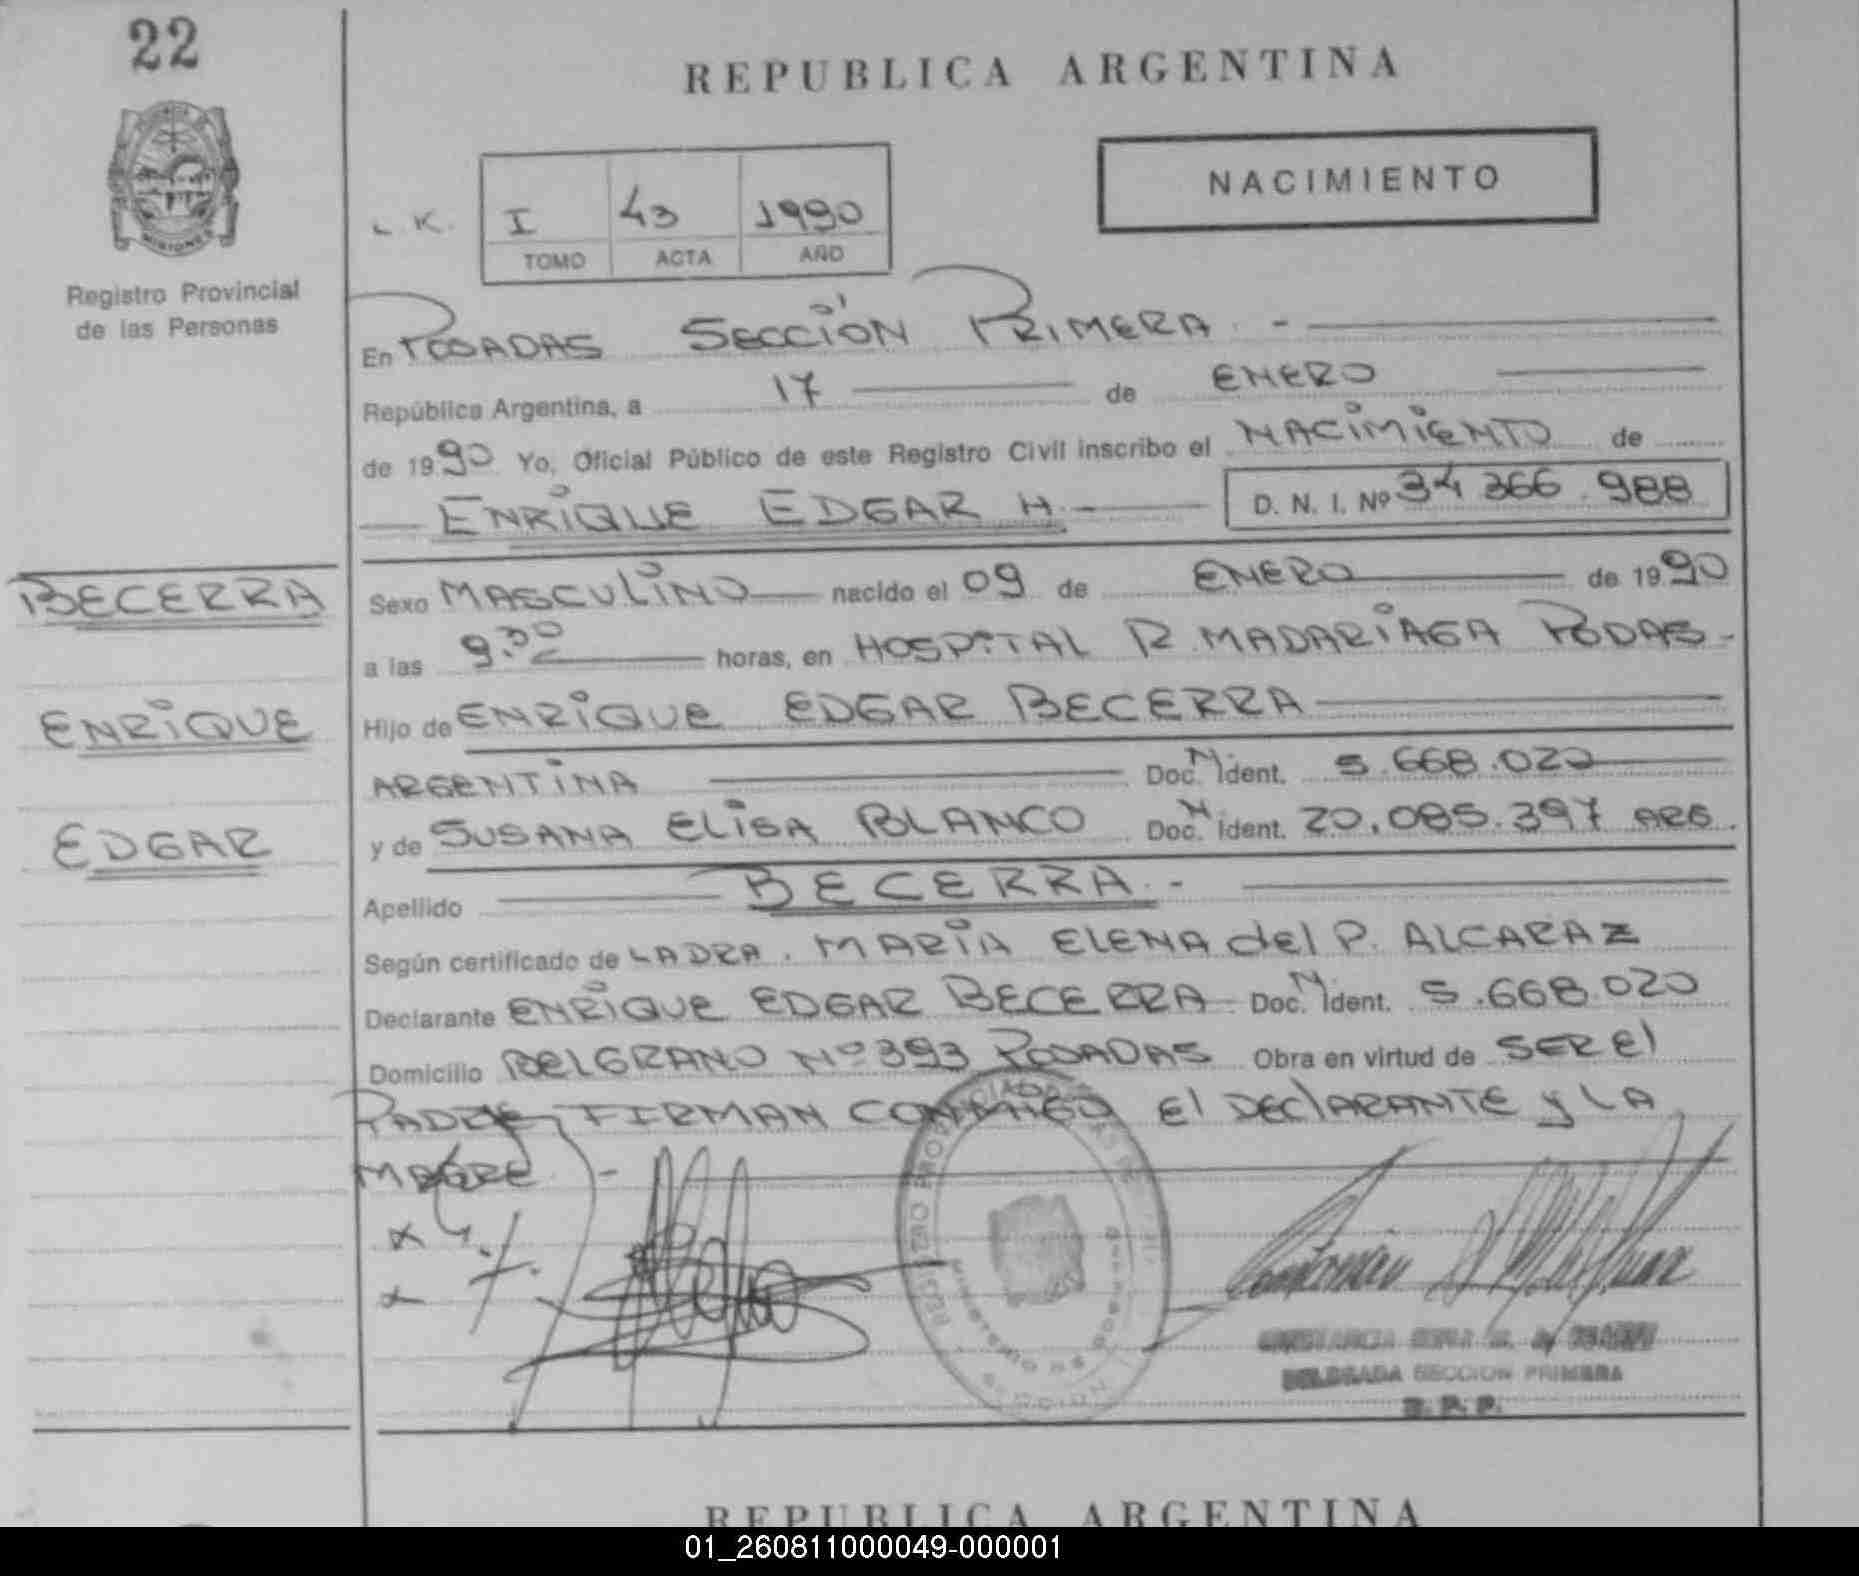 22
REPUBLICA ARGENTINA
NACIMIENTO
MISIONES
Registro Provincial
de las Personas
L.K. I 43 1990
TOMO ACTA AÑO
En POSADAS SECCIÓN PRIMERA.-
República Argentina, a 17 de ENERO
de 1990 Yo, Oficial Público de este Registro Civil inscribo el NACIMIENTO de
ENRIQUE EDGAR H.- D. N. I. Nº 34 366.988
BECERRA
ENRIQUE
EDGAR
Sexo MASCULINO nacido el 09 de ENERO de 1990
a las 9:30 horas, en HOSPITAL R. MADARIAGA PODAS-
Hijo de ENRIQUE EDGAR BECERRA
ARGENTINA Doc. N. Ident. 5.668.020
y de SUSANA ELISA BLANCO Doc. N. Ident. 20.085.397 ARG.
Apellido BECERRA.-
Según certificado de LA DRA. MARIA ELENA del P. ALCARAZ
Declarante ENRIQUE EDGAR BECERRA Doc. N. Ident. 5.668.020
Domicilio BELGRANO Nº 393 POSADAS Obra en virtud de SER El
PADRE FIRMAN CONMIGO El DEClARANTE y LA
MADRE.-
DELEGADA SECCION PRIMERA
R. P. P.
REPUBLICA ARGENTINA
01_260811000049-000001